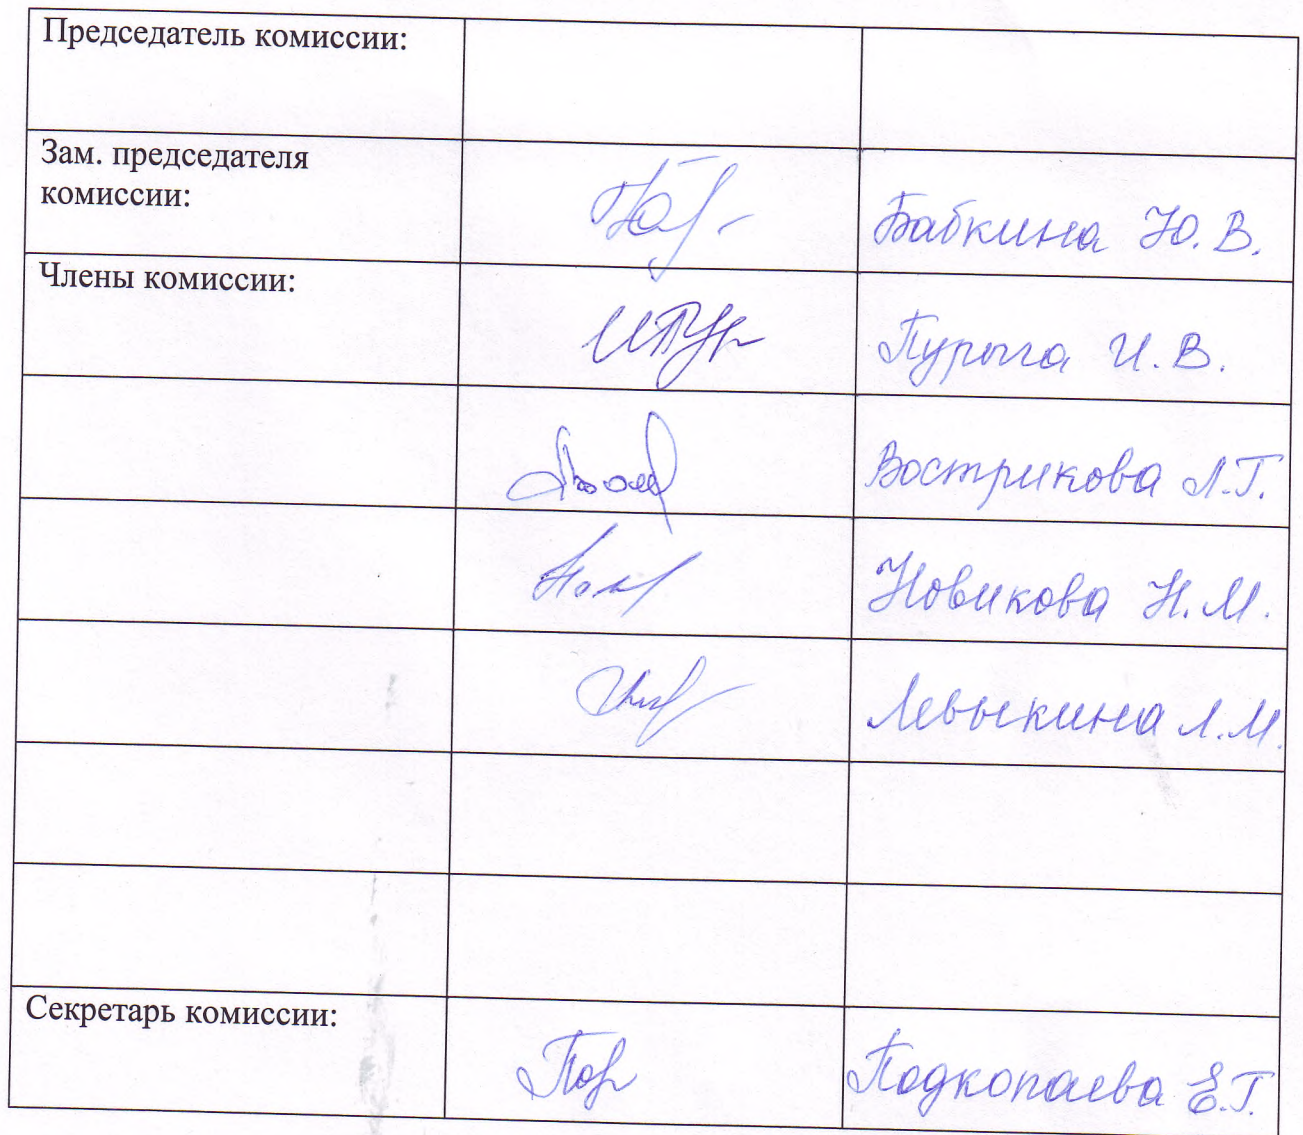 Председатель комиссии:
Зам. председателя
комиссии:
Бабкина Ю. В.
Члены комиссии:
Пурыга И. В.
Вострикова Л.Г.
Новикова Н.М.
Левыкина Л.М.
Секретарь комиссии:
Подкопаева Е.Г.